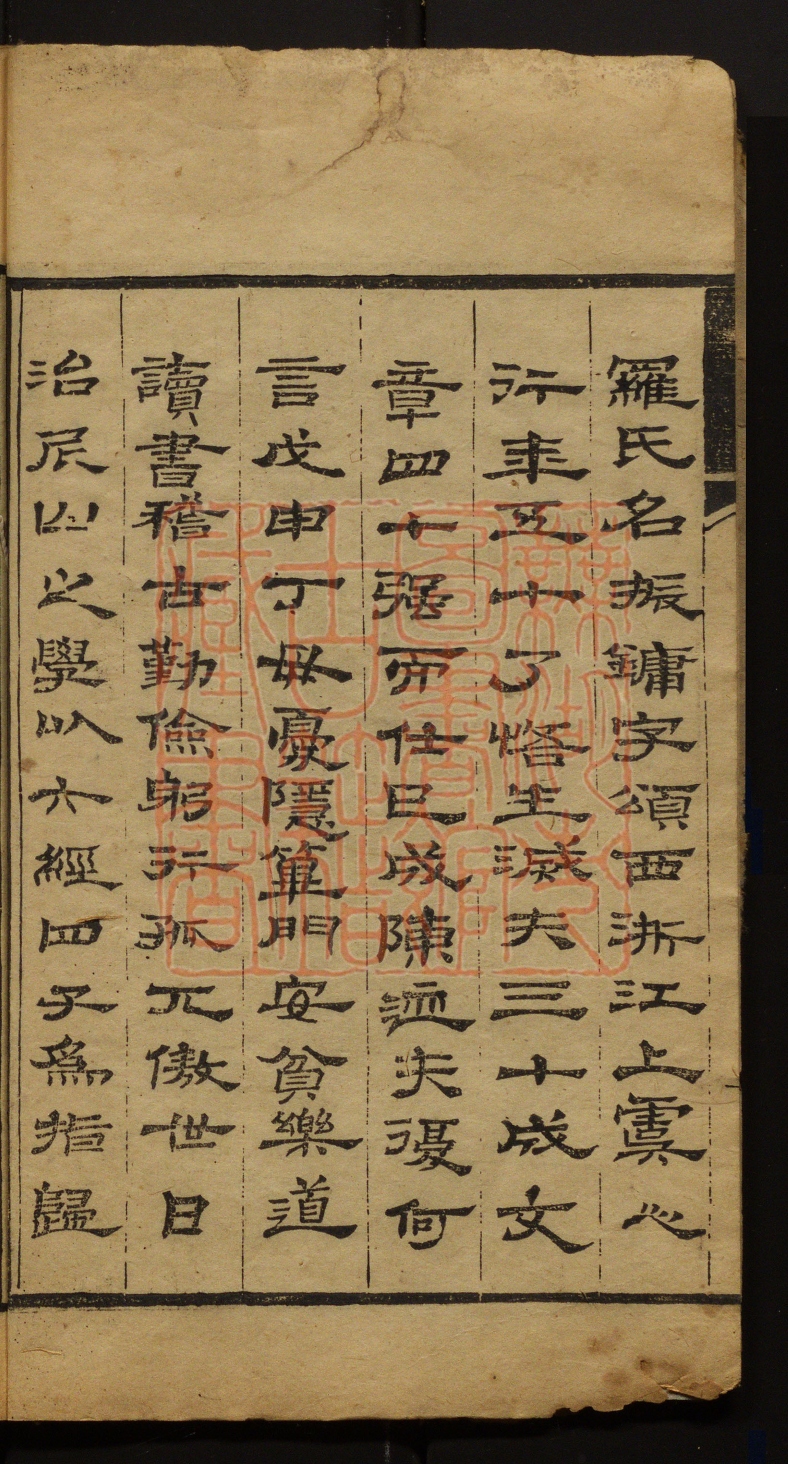 羅氏名振鏞字頌西浙江上虞心
行年五十了悟生滅夫三十成文
章四十强而仕已成陳迹夫復何
言戊申丁母憂隱篳門安貧樂道
讀書稽古勤儉躬行孤兀傲世日
治尼山之學以六經四子為指歸